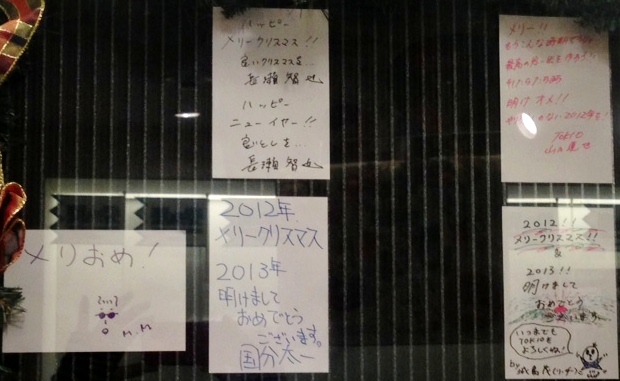 ハッピー
メリークリスマス!!
良いクリスマスを…
長瀬智也
ハッピー
ニューイヤー!!
良いとしを…
長瀬智也
メリー!!
明けオメ!!
TOKIO
メリおめ!
M.M
2012年
メリークリスマス
2013年
明けまして
おめでとう
ございます。
国分太一
2012!!
メリークリスマス!!
&
2013!!
明けまして
おめでとう
ございます
いつまでも
TOKIOを
よろしくね!
by 城島茂(リーダー)